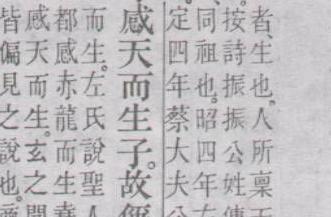 者、生也。人所稟
按詩振振公姓傳
同祖也。昭四年左
定四年蔡大夫公
感天而生子。故偁
而生。左氏說聖人
都感赤龍而生堯
感天而生。玄之聞
皆偏見之說也。